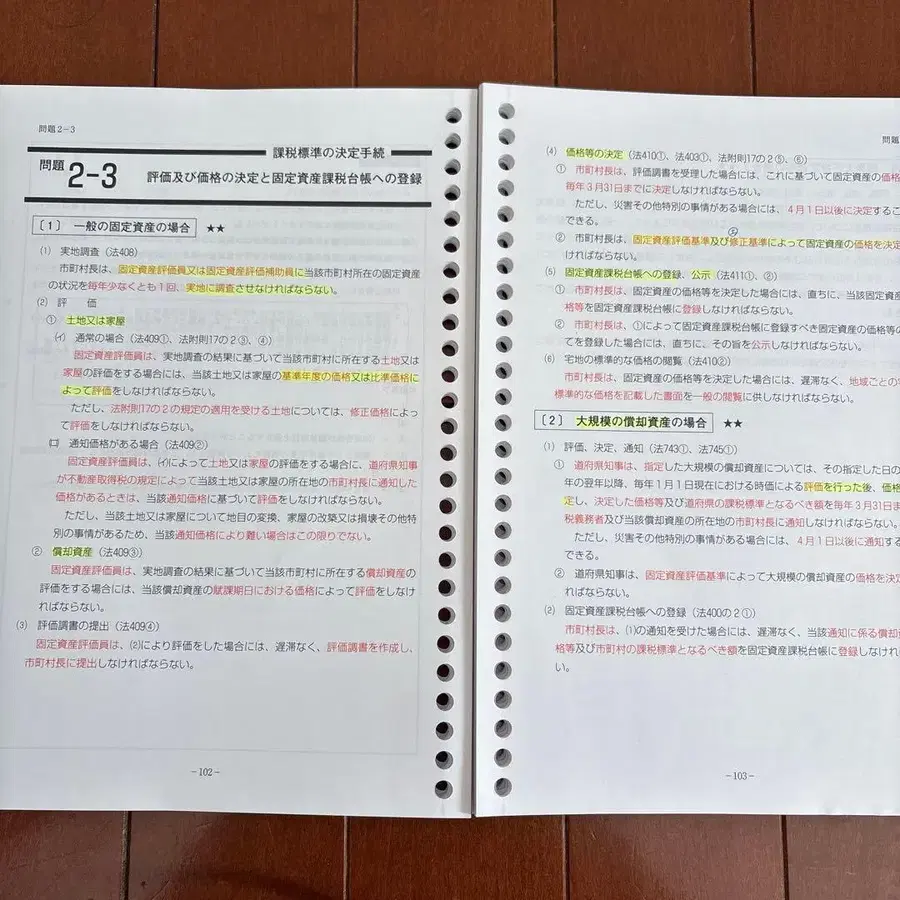 問題2－3
課税標準の決定手続
問題 2-3 評価及び価格の決定と固定資産課税台帳への登録
〔1〕 一般の固定資産の場合 ★★
(1) 実地調査（法408）
市町村長は、固定資産評価員又は固定資産評価補助員に当該市町村所在の固定資産
の状況を毎年少なくとも1回、実地に調査させなければならない。
(2) 評 価
① 土地又は家屋
(イ) 通常の場合（法409①、法附則17の2③、④）
固定資産評価員は、実地調査の結果に基づいて当該市町村に所在する土地又は
家屋の評価をする場合には、当該土地又は家屋の基準年度の価格又は比準価格に
よって評価をしなければならない。
ただし、法附則17の2の規定の適用を受ける土地については、修正価格によっ
て評価をしなければならない。
(ロ) 通知価格がある場合（法409②）
固定資産評価員は、(イ)によって土地又は家屋の評価をする場合に、道府県知事
が不動産取得税の規定によって当該土地又は家屋の所在地の市町村長に通知した
価格があるときは、当該通知価格に基づいて評価をしなければならない。
ただし、当該土地又は家屋について地目の変換、家屋の改築又は損壊その他特
別の事情があるため、当該通知価格により難い場合はこの限りでない。
② 償却資産（法409③）
固定資産評価員は、実地調査の結果に基づいて当該市町村に所在する償却資産の
評価をする場合には、当該償却資産の賦課期日における価格によって評価をしなけ
ればならない。
(3) 評価調書の提出（法409④）
固定資産評価員は、(2)により評価をした場合には、遅滞なく、評価調書を作成し、
市町村長に提出しなければならない。
－102－
問題
(4) 価格等の決定（法410①、法403①、法附則17の2⑤、⑥）
① 市町村長は、評価調書を受理した場合には、これに基づいて固定資産の価格
毎年3月31日までに決定しなければならない。
ただし、災害その他特別の事情がある場合には、4月1日以後に決定するこ
できる。
② 市町村長は、固定資産評価基準及び修正基準によって固定資産の価格を決定
ければならない。
(5) 固定資産課税台帳への登録、公示（法411①、②）
① 市町村長は、固定資産の価格等を決定した場合には、直ちに、当該固定資産
格等を固定資産課税台帳に登録しなければならない。
② 市町村長は、①によって固定資産課税台帳に登録すべき固定資産の価格等の
てを登録した場合には、直ちに、その旨を公示しなければならない。
(6) 宅地の標準的な価格の閲覧（法410②）
市町村長は、固定資産の価格等を決定した場合には、遅滞なく、地域ごとの
標準的な価格を記載した書面を一般の閲覧に供しなければならない。
〔2〕 大規模の償却資産の場合 ★★
(1) 評価、決定、通知（法743①、法745①）
① 道府県知事は、指定した大規模の償却資産については、その指定した日の
年の翌年以降、毎年1月1日現在における時価による評価を行った後、価格
定し、決定した価格等及び道府県の課税標準となるべき額を毎年3月31日ま
税義務者及び当該償却資産の所在地の市町村長に通知しなければならない。
ただし、災害その他特別の事情がある場合には、4月1日以後に通知する
できる。
② 道府県知事は、固定資産評価基準によって大規模の償却資産の価格を決定
ければならない。
(2) 固定資産課税台帳への登録（法400の2①）
市町村長は、(1)の通知を受けた場合には、遅滞なく、当該通知に係る償却資
格等及び市町村の課税標準となるべき額を固定資産課税台帳に登録しなけれ
い。
－103－